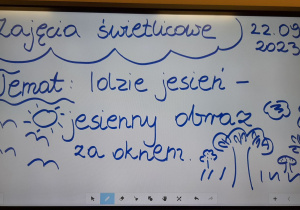 Zajęcia świetlicowe
22.09
2023
Temat: Idzie jesień -
jesienny obraz
za oknem.